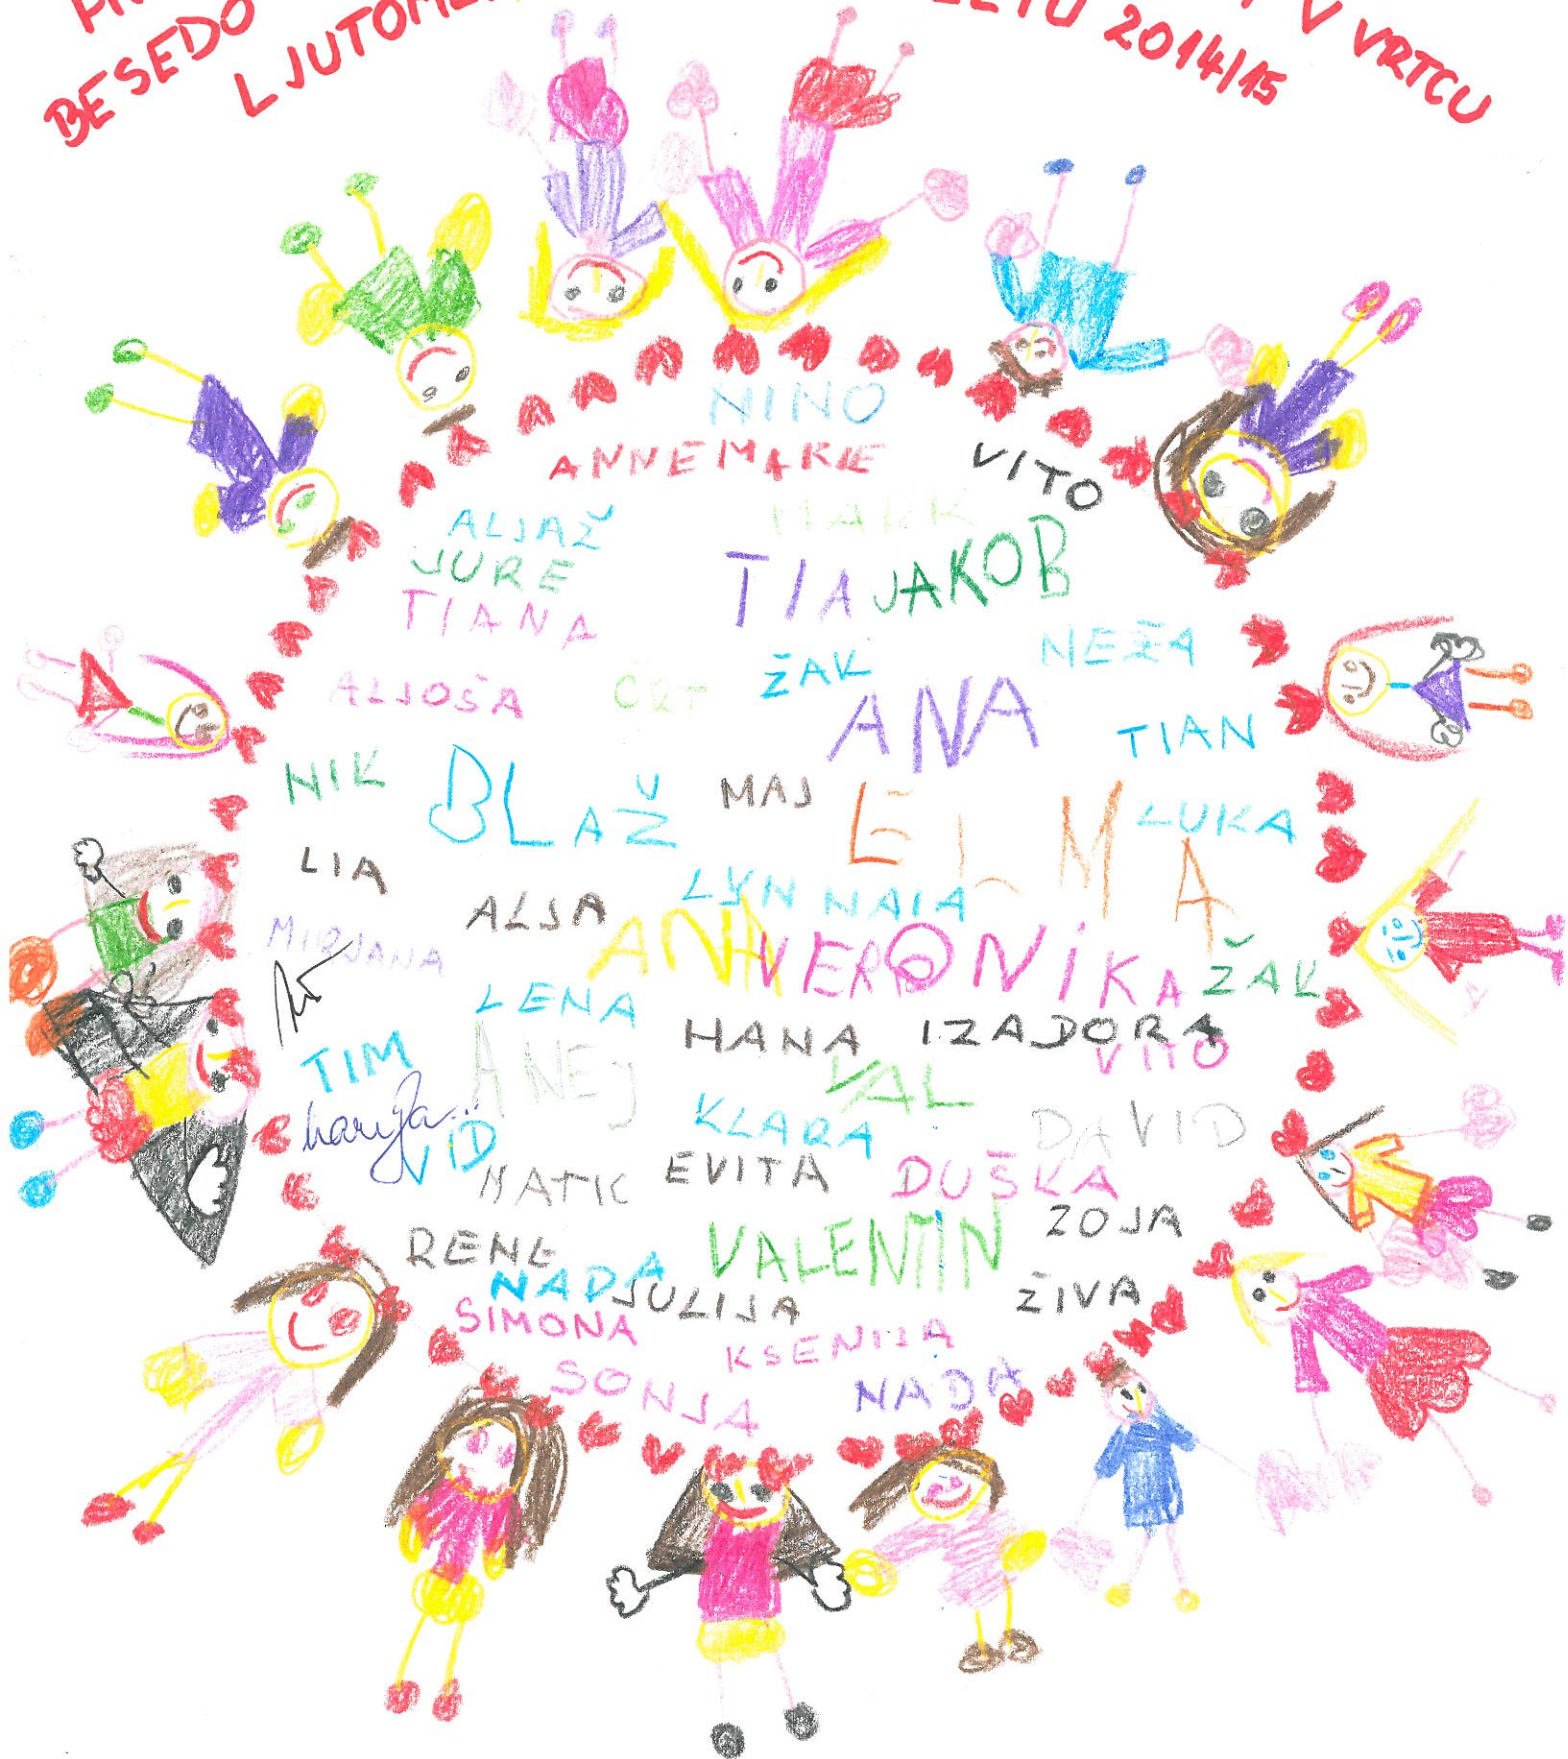 BESEDO
LJUTOME
LETU 2014/15
V VRTCU
NINO
ANNEMARIE
VITO
ALJAŽ
MARK
JURE
TIA
JAKOB
TIANA
NEŽA
ALJOŠA
ČRT
ŽAK
ANA
TIAN
NIK
BLAŽ
MAJ
ELMA
LUKA
LIA
ALJA
LYN NAIA
MIRJANA
ANA
VERONIKA
ŽAK
LENA
HANA
IZADORA
TIM
ANEJ
VAL
VITO
KLARA
DAVID
VID
MATIC
EVITA
DUŠKA
RENE
VALENTIN
ZOJA
NADA
JULIJA
ŽIVA
SIMONA
KSENIJA
SONJA
NADA